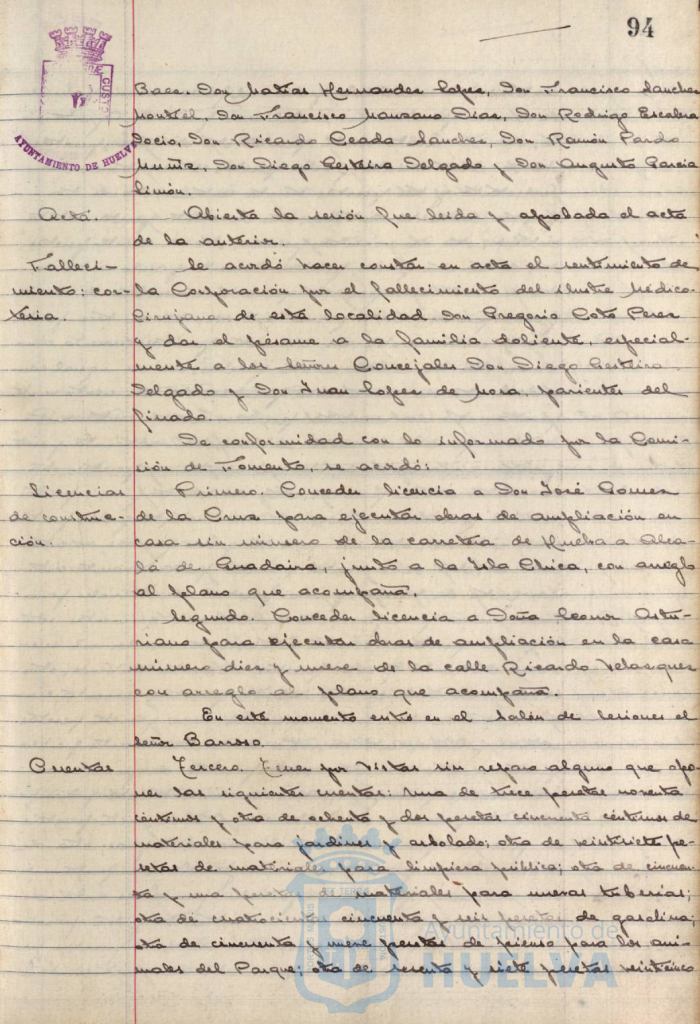 94
CUSTO
AYUNTAMIENTO DE HUELVA
Baez, Don Matías Hernandez López, Don Francisco Sanchez
Montiel, Don Francisco Manzano Diaz, Don Rodrigo Escobar
Socio, Don Ricardo Ceada Sanchez, Don Ramón Pardo
Muñiz, Don Diego Gesteira Delgado y Don Augusto García
Simón.
Acta.
Abierta la sesión fue leida y aprobada el acta
de la anterior.
Falleci-
miento: cor-
tesia.
Se acordó hacer constar en acta el sentimiento de
la Corporación por el fallecimiento del ilustre Médico-
Cirujano de esta localidad Don Gregorio Coto Perez
y dar el pésame a la familia doliente, especial-
mente a los Señores Concejales Don Diego Gesteira
Delgado y Don Juan Lopez de Mora, parientes del
finado.
De conformidad con lo informado por la Comi-
sión de Fomento, se acordó:
Licencias
de construc-
ción.
Primero. Conceder licencia a Don José Gomez
de la Cruz para ejecutar obras de ampliación en
casa sin número de la carretera de Huelva a Alca-
lá de Guadaira, junto a la Isla Chica, con arreglo
al plano que acompaña.
Segundo. Conceder licencia a Doña Leonor Astu-
riano para ejecutar obras de ampliación en la casa
número diez y nueve de la calle Ricardo Velazquez
con arreglo al plano que acompaña.
En este momento entró en el Salón de Sesiones el
Señor Barroso.
Cuentas
Tercero. Tener por vistas sin reparo alguno que opo-
ner las siguientes cuentas: una de trece pesetas noventa
céntimos y otra de ochenta y dos pesetas cincuenta céntimos de
materiales para jardines y arbolado; otra de veintisiete pe-
setas de materiales para limpieza pública; otra de cincuen-
ta y una pesetas de materiales para nuevas tuberías;
otra de cuatrocientas cincuenta y seis pesetas de gasolina;
otra de cincuenta y nueve pesetas de pienso para los ani-
males del Parque; otra de sesenta y siete pesetas veinticinco
Ayuntamiento de
HUELVA